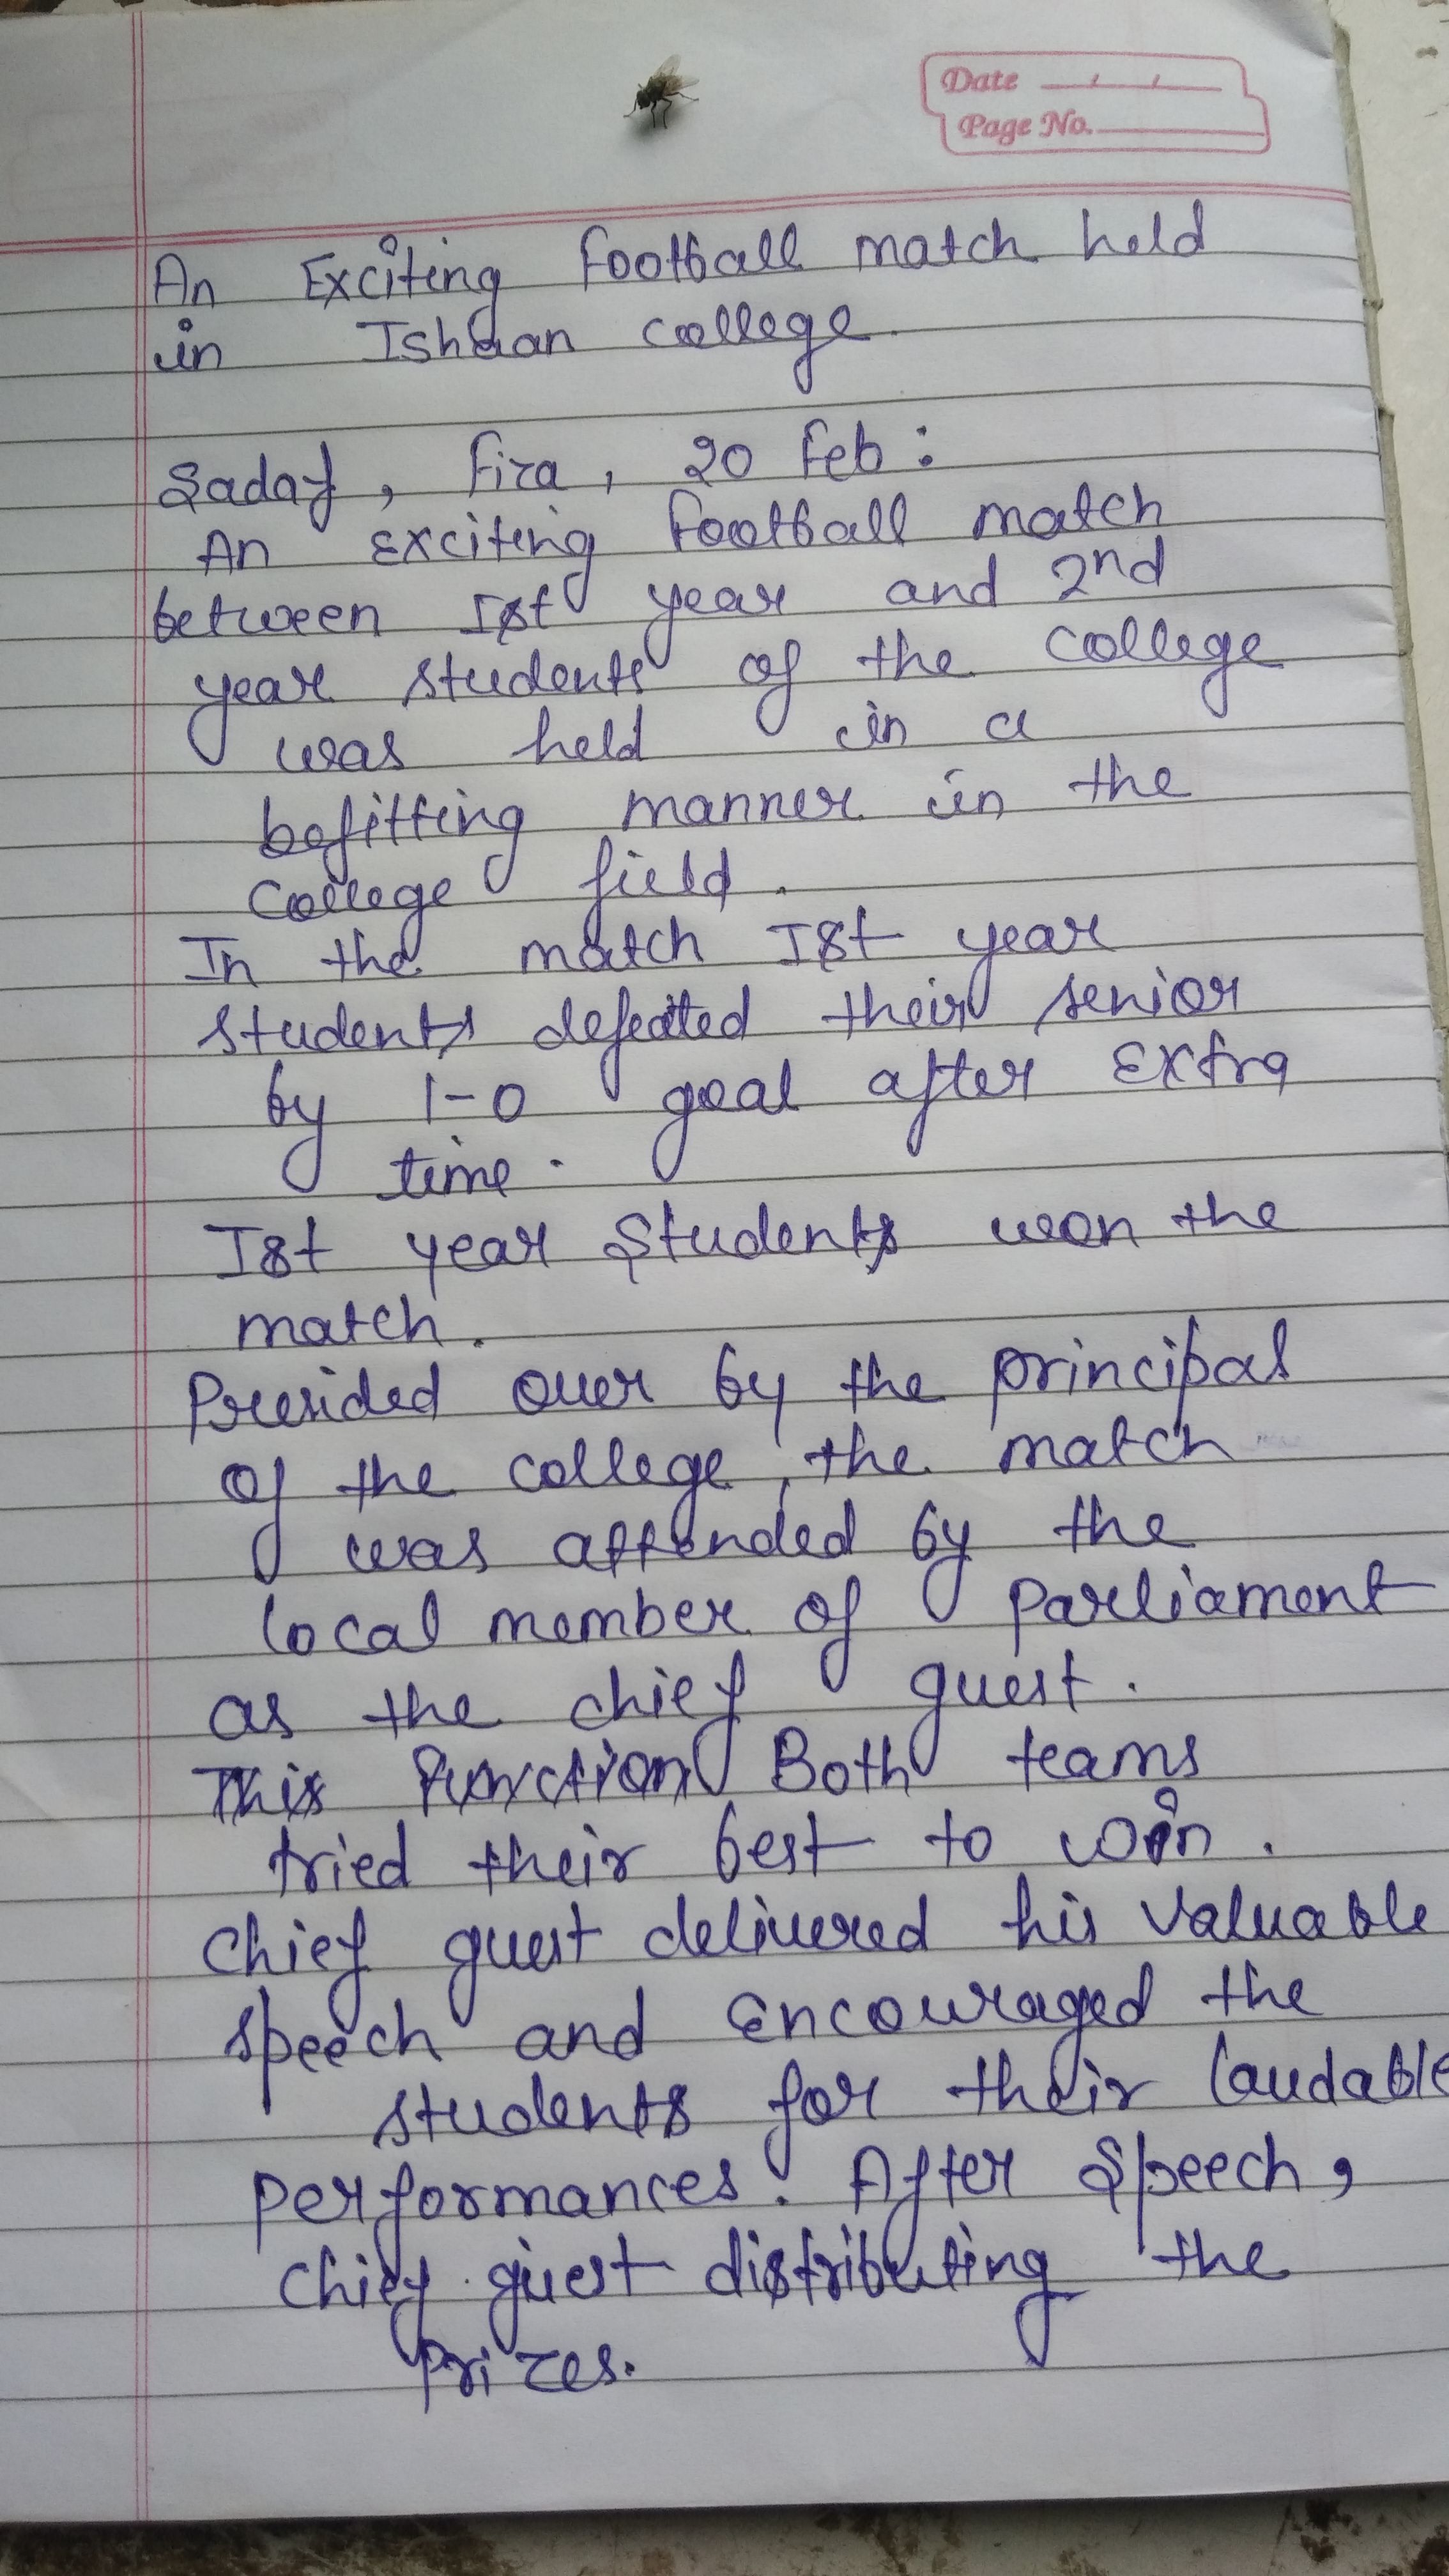 Date
Page No.
An Exciting football match held
in Ishaan college.
Sadaf, fiza, 20 feb:
An exciting football match
between Ist year and 2nd
year students of the college
was held in a
befitting manner in the
College field.
In the match Ist year
students defeated their senior
by 1-0 goal after extra
time.
Ist year students won the
match.
Presided over by the principal
of the college, the match
was attended by the
local member of parliament
as the chief guest.
This function Both teams
tried their best to win.
Chief guest delivered his valuable
speech and encouraged the
students for their laudable
performances. After speech,
chief guest distributing the
prizes.